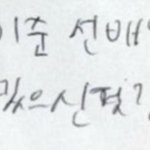 이준 선배
있으신 편?